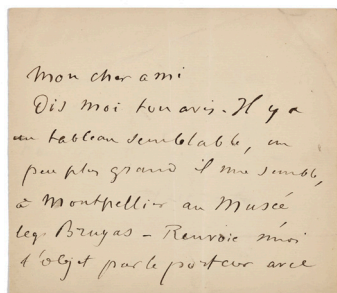 Mon cher ami
Dis moi ton avis - Il y a
un tableau semblable, un
peu plus grand il me semble,
à Montpellier au Musée
leg. Bruyas - Renvoie moi
l'objet par le porteur avec